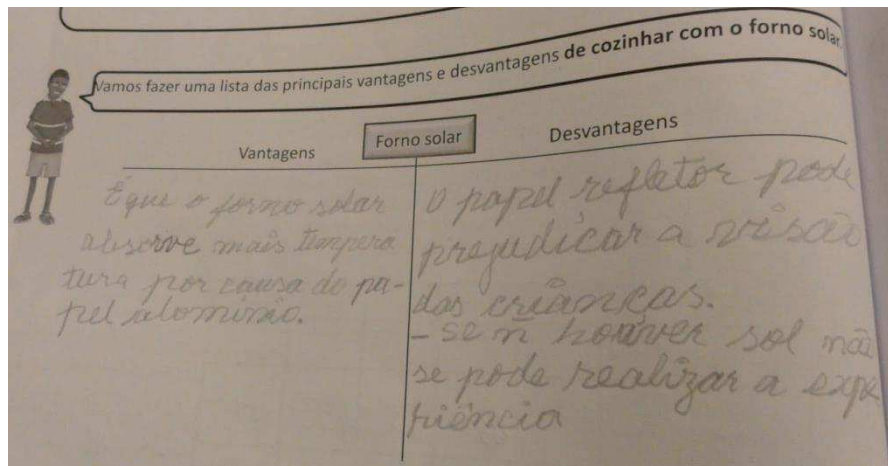 Vamos fazer uma lista das principais vantagens e desvantagens de cozinhar com o forno solar.
Forno solar
Vantagens
É que o forno solar
absorve mais tempera
tura por causa do pa-
pel alominio.
Desvantagens
O papel refletor pode
prejudicar a visão
das crianças.
- se n houver sol não
se pode realizar a expe
riência